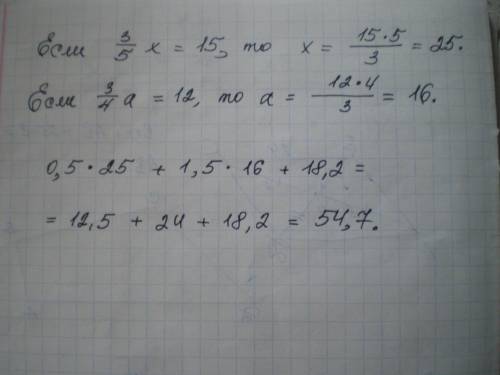 Если 3/5 x = 15, то x = 15·5/3 = 25.
Если 3/4 a = 12, то a = 12·4/3 = 16.
0,5·25 + 1,5·16 + 18,2 =
= 12,5 + 24 + 18,2 = 54,7.